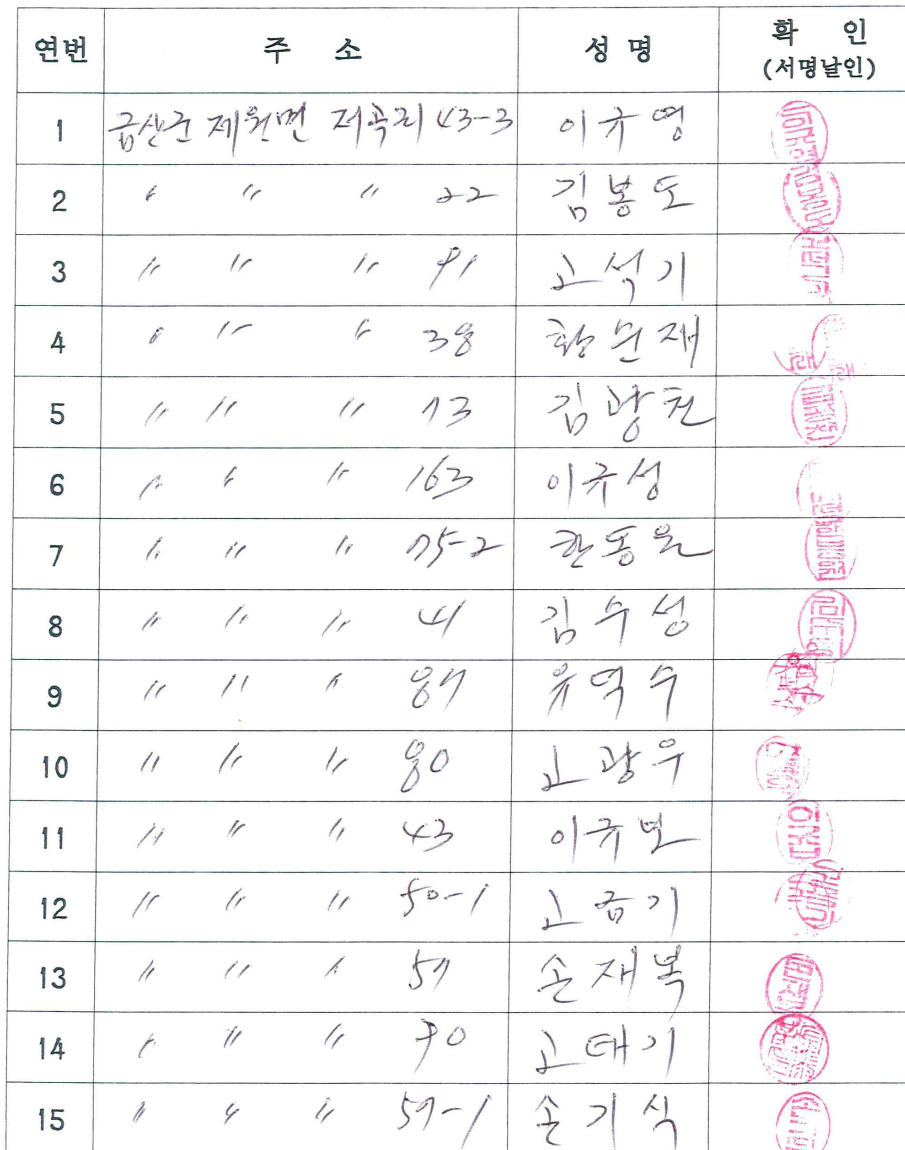 연번 주 소 성 명 확 인
(서명날인)
1 금산군 제원면 저곡리 43-3 이규영
2 〃 〃 〃 22 김봉도
3 〃 〃 〃 91 고석기
4 〃 〃 〃 38 황순재
5 〃 〃 〃 73 김광천
6 〃 〃 〃 163 이규성
7 〃 〃 〃 75-2 한동운
8 〃 〃 〃 41 김수성
9 〃 〃 〃 87 유덕수
10 〃 〃 〃 80 고광우
11 〃 〃 〃 43 이규보
12 〃 〃 〃 50-1 고금기
13 〃 〃 〃 57 손재복
14 〃 〃 〃 90 고태기
15 〃 〃 〃 57-1 손기식